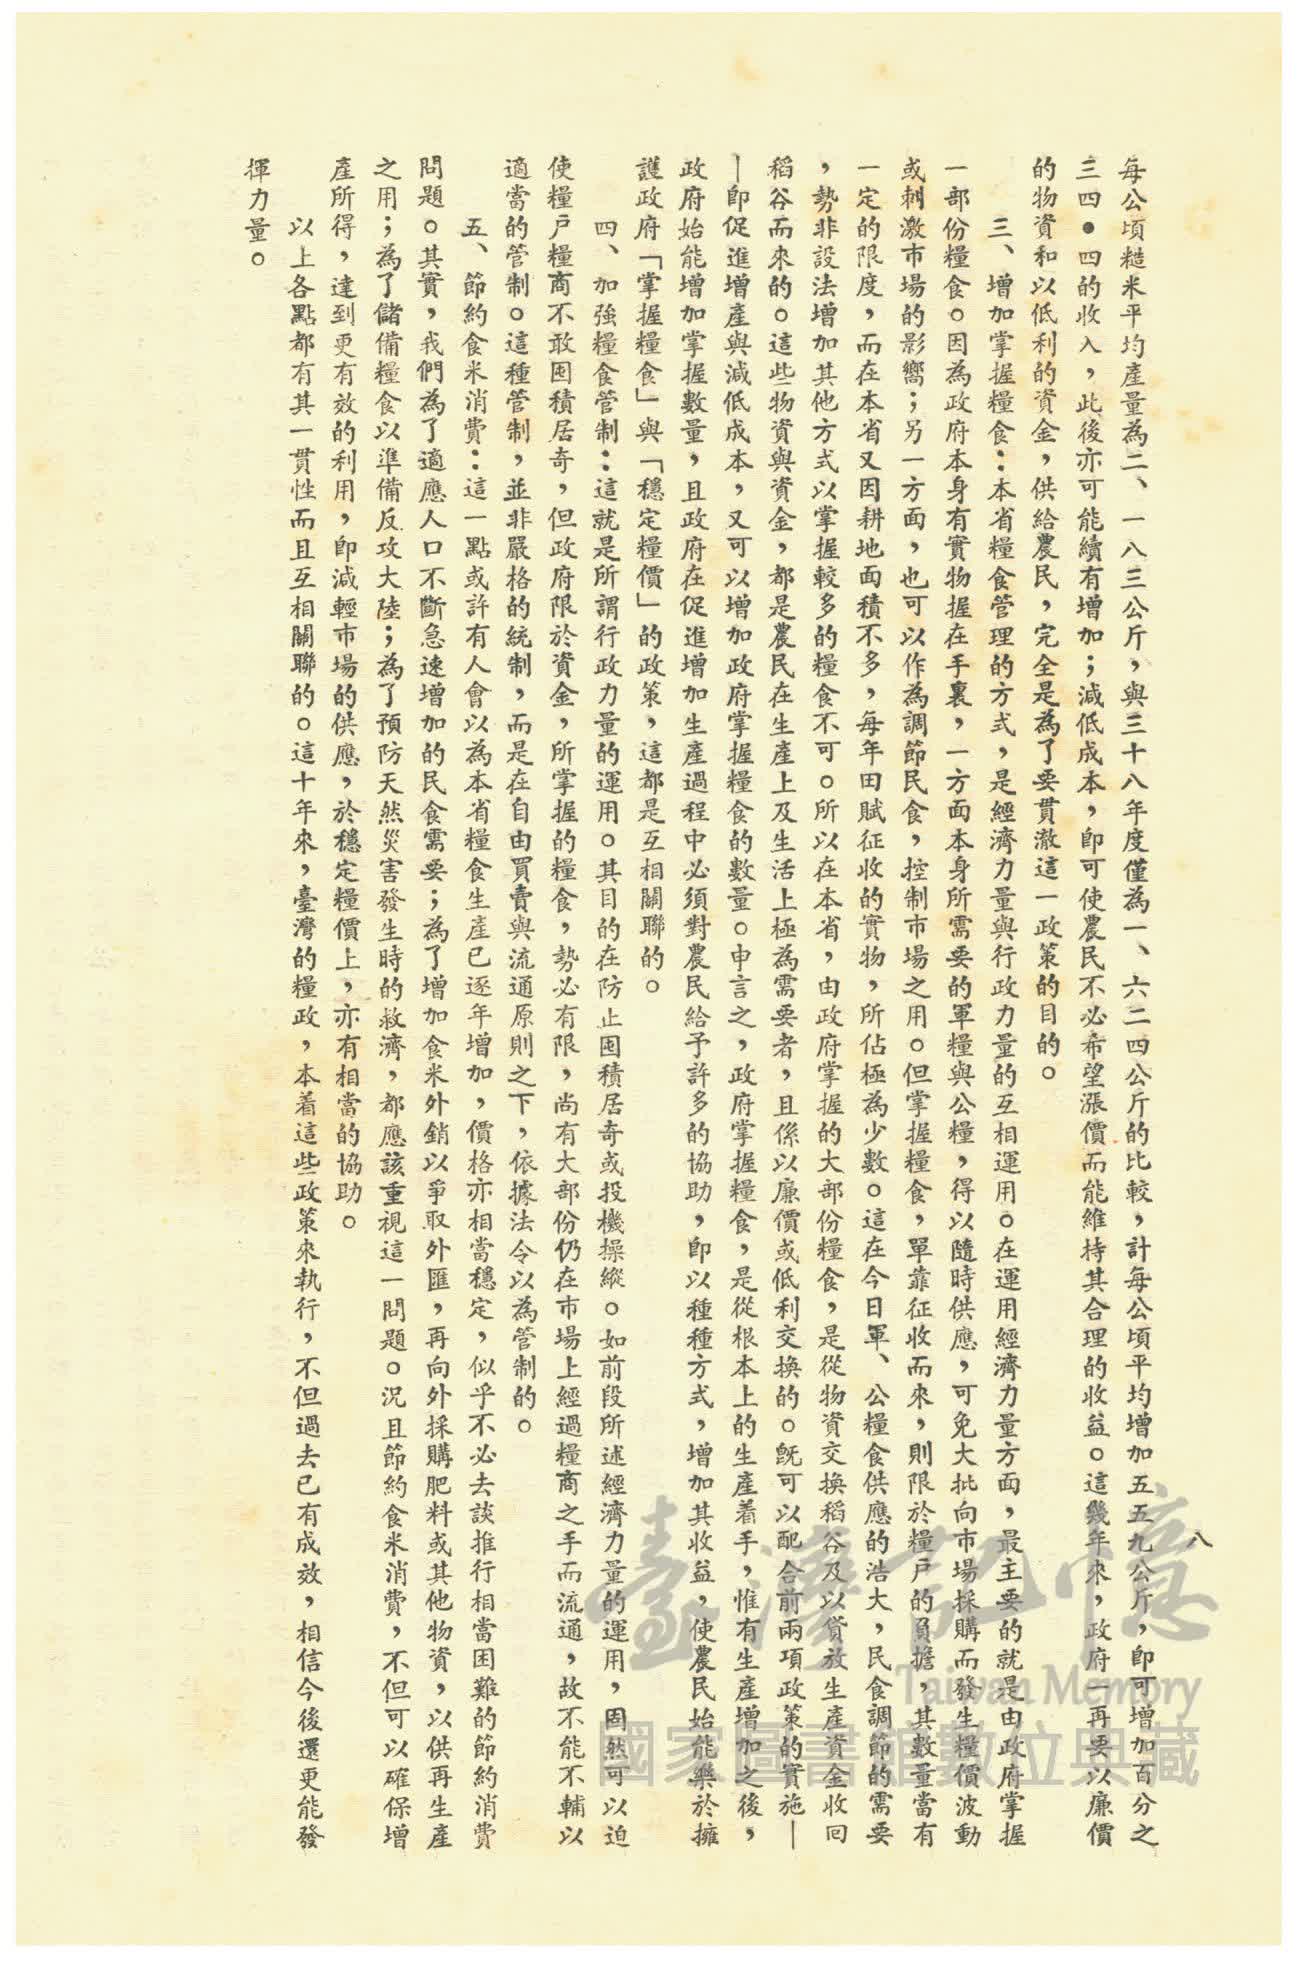 每公頃糙米平均產量為二、一八三公斤，與三十八年度僅為一、六二四公斤的比較，計每公頃平均增加五五九公斤，即可增加百分之
三四•四的收入，此後亦可能續有增加；減低成本，即可使農民不必希望漲價而能維持其合理的收益。這幾年來，政府一再要以廉價
的物資和以低利的資金，供給農民，完全是為了要貫澈這一政策的目的。
三、增加掌握糧食：本省糧食管理的方式，是經濟力量與行政力量的互相運用。在運用經濟力量方面，最主要的就是由政府掌握
一部份糧食。因為政府本身有實物握在手裏，一方面本身所需要的軍糧與公糧，得以隨時供應，可免大批向市場採購而發生糧價波動
或刺激市場的影響；另一方面，也可以作為調節民食，控制市場之用。但掌握糧食，單靠征收而來，則限於糧戶的負擔，其數量當有
一定的限度，而在本省又因耕地面積不多，每年田賦征收的實物，所佔極為少數。這在今日軍、公糧食供應的浩大，民食調節的需要
，勢非設法增加其他方式以掌握較多的糧食不可。所以在本省，由政府掌握的大部份糧食，是從物資交換稻谷及以貸放生產資金收回
稻谷而來的。這些物資與資金，都是農民在生產上及生活上極為需要者，且係以廉價或低利交換的。既可以配合前兩項政策的實施—
—即促進增產與減低成本，又可以增加政府掌握糧食的數量。申言之，政府掌握糧食，是從根本上的生產着手，惟有生產增加之後，
政府始能增加掌握數量，且政府在促進增加生產過程中必須對農民給予許多的協助，即以種種方式，增加其收益，使農民始能樂於擁
護政府「掌握糧食」與「穩定糧價」的政策，這都是互相關聯的。
四、加強糧食管制：這就是所謂行政力量的運用。其目的在防止囤積居奇或投機操縱。如前段所述經濟力量的運用，固然可以迫
使糧戶糧商不敢囤積居奇，但政府限於資金，所掌握的糧食，勢必有限，尚有大部份仍在市場上經過糧商之手而流通，故不能不輔以
適當的管制。這種管制，並非嚴格的統制，而是在自由買賣與流通原則之下，依據法令以為管制的。
五、節約食米消費：這一點或許有人會以為本省糧食生產已逐年增加，價格亦相當穩定，似乎不必去談推行相當困難的節約消費
問題。其實，我們為了適應人口不斷急速增加的民食需要；為了增加食米外銷以爭取外匯，再向外採購肥料或其他物資，以供再生產
之用；為了儲備糧食以準備反攻大陸；為了預防天然災害發生時的救濟，都應該重視這一問題。況且節約食米消費，不但可以確保增
產所得，達到更有效的利用，即減輕市場的供應，於穩定糧價上，亦有相當的協助。
以上各點都有其一貫性而且互相關聯的。這十年來，臺灣的糧政，本着這些政策來執行，不但過去已有成效，相信今後還更能發
揮力量。
八
臺灣記憶
Taiwan Memory
國家圖書館數位典藏